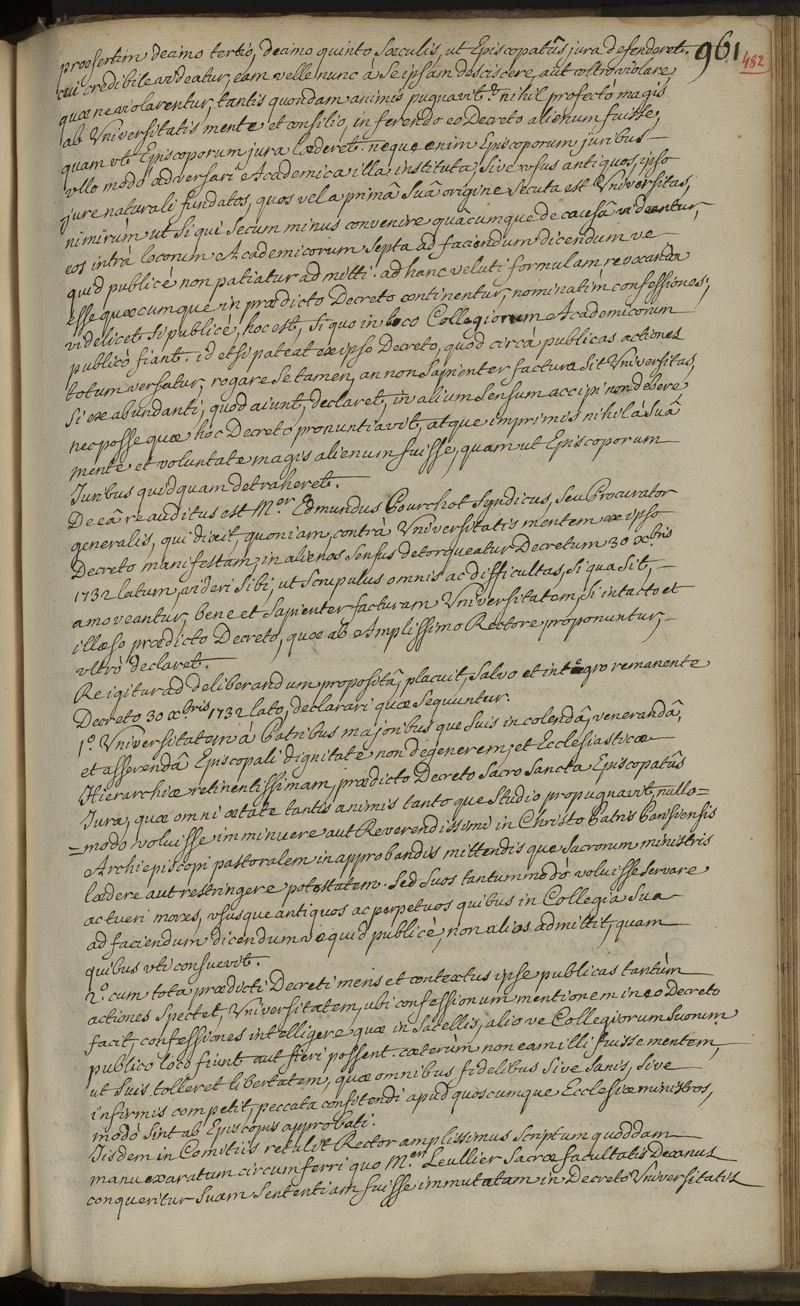 961
482
præsertim decimo tertio, decimo quinto Sæculis, ut Episcopatûs jura defenderet.
cui credibile videatur, eam velle nunc à Se ipsam desciscere, aut ultro violare,
quæ ne violarentur, tantis quondam animis pugnavit? nihil profectò magis
ab Universitatis mente et consilio, in ferendo eo Decreto alienum fuisse,
quam uti Episcoporum jura læderet. neque enim Episcoporum juribus
ullo modo adversari Academica illa instituta, Sive usus antiquos, ipso
jure naturali fundatos, quos vel a primâ Suâ origine Secuta est Universitas,
nimirùm ut Si qui Secum minus convenire quâcumque de causâ videantur,
eos intrà locorum Academicorum Septa ad faciendum dicendum ve
quid publicè non patiatur admitti. ad hanc veluti formulam revocanda
esse quæcumque in prædicto Decreto continentur, nominatim confessiones,
videlicet Si publicè, hoc est, Si quo in loco Collegiorum Academicorum
publicò fiant. id etsi pateat ex ipso Decreto, quod circà publicas actiones
totum versatur, rogare Se tamen, an non Sapienter factura Sit Universitas,
Si ex abundanti, quod aiunt, declaret, in alium Sensum accipi non debere
nec posse quæ hoc Decreto pronuntiavit, atque imprimis nihil à Suâ
mente et voluntate magis alienum fuisse, quam ut Episcoporum
Juribus quidquam detraheret.
De eâ re auditus est Mer Edmundus Pourchot Syndicus, Seu Procurator
generalis, qui dixit, quoniam, contrà Universitatis mentem ex ipso
Decreto manifestam, in alienos Sensus detorqueatur Decretum 30 xbris
1732 latum, videri Sibi, ut Scrupulus omnis ac difficultas, Si qua Sit,
amoveantur, bene et Sapienter facturam Universitatem, Si intacto et
illæso prædicto Decreto, quæ ab Amplissimo Rectore proponuntur,
ultrò declaret.
Re igitur ad deliberandum propositâ, placuit, Salvo et integro remanente
Decreto 30 xbris 1732 lato, declarari quæ Sequuntur.
1o. Universitatem à Patribus majoribusque Suis in colendâ, venerandâ,
et asserendâ Episcopali dignitate non degenerem, et Ecclesiasticæ
Hierarchiæ retinentissimam, prædicto Decreto Sacro Sancta Episcopatûs
Jura, quæ omni ætate tantis animis tantoque Studio propugnavit, nullo=
=modo voluisse imminuere aut Reverendissimi in Christo Patris Parisiensis
Archiepiscopi pastoralem in approbandis mittendisque Sacrorum ministris
lædere aut restringere potestatem. Sed Suos tantummodò voluisse Servare
ac tueri mores, ususque antiquos ac perpetuos quibus in Collegia Sua
ad faciendum dicendum ve quid publicè, non alios admittit, quam
quibus uti consuevit.
2o. cum tota prædicti Decreti mens et contextus ipse publicas tantùm
actiones Spectet, Universitatem, ubi confessionum mentionem in eo Decreto
facit, confessiones intelligere quæ in Sacellis, alio ve Collegiorum Suorum
publico loco fiunt aut fieri possent. cæterùm non eam illi fuisse mentem,
ut Suis tolleret libertatem, quæ omnibus fidelibus Sive Sanis, Sive
infirmis competit, peccata confitendi apud quoscumque Ecclesiæ ministros,
modò Sint ab Episcopis approbati.
Iisdem in Comitiis retulit Rector amplissimus Scriptum quoddam
manu exaratum circumferri quo Mer Leullier Sacræ facultatis Decanus
conqueritur Suam Sententiam fuisse immutatam in Decreto Universitatis